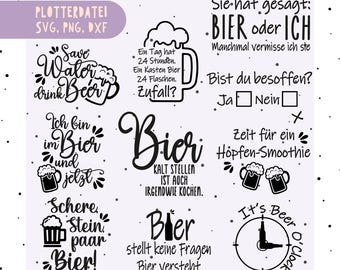 PLOTTERDATEI
SVG, PNG, DXF
Save
Water
drink
Beer
Ein Tag hat
24 Stunden.
Ein Kasten Bier
24 Flaschen.
Zufall?
Sie hat gesagt:
BIER oder ICH
Manchmal vermisse ich sie
Bist du besoffen?
Ja Nein
Ich bin
im Bier
und
jetzt
Bier
KALT STELLEN
IST AUCH
IRGENDWIE KOCHEN.
Zeit für ein
Hopfen-Smoothie
Schere,
Stein,
paar
Bier!
Bier
stellt keine Fragen
Bier versteht
It's Beer O'Clock